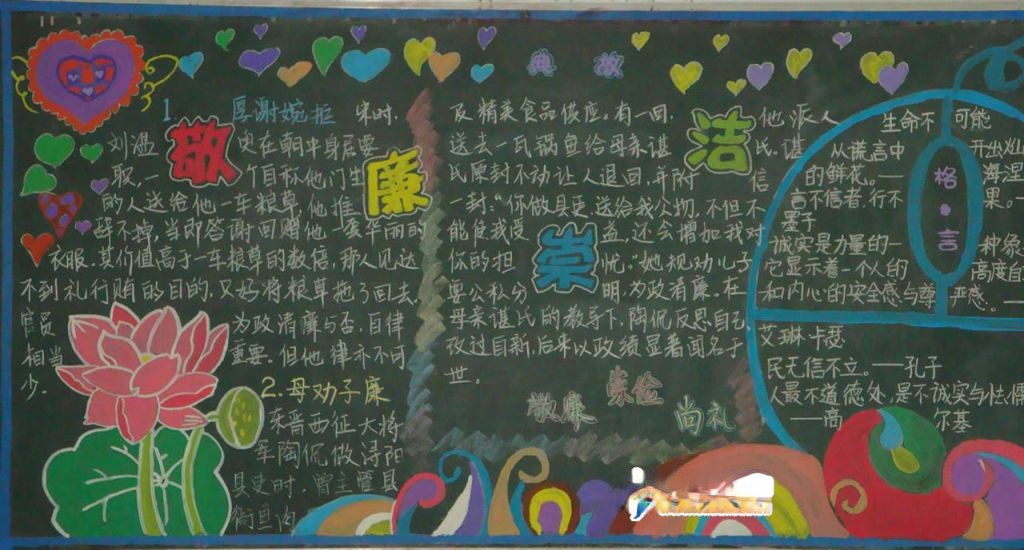 典故
1. 厚谢婉拒 宋时,
刘温 敬 史在朝中身居要
取,一 个自称他门生 廉
的人送给他一车粮草,他推
辞不掉,当即答谢回赠他一套华丽的
衣服,其价值高于一车粮草的数倍,那人见达
不到礼行贿的目的,又好将粮草拖了回去。
官员 为政清廉与否,自律
相当 重要。但他律亦不可
少。
2.母劝子廉
东晋西征大将
军陶侃做浔阳
县吏时,曾主管县
及精美食品供应。有一回,
洁 他派人
送去一瓦锅鱼给母亲谌 氏,谌
氏原封不动让人退回,并附 信
一封:“你做县吏,送给我公物,不但不
能使我受 崇 益,还会增加我对
你的担 忧。”她规劝儿子
要公私分 明,为政清廉。在
母亲谌氏的教导下,陶侃反思自己,
改过自新,后来以政绩显著闻名于
世。
崇俭
尚礼
格言
生命不可能
从谎言中开出灿
的鲜花。——海涅
言不信者,行不果。——
墨子
诚实是力量的一种象
它显示着一个人的高度自
和内心的安全感与尊严感。——
艾琳·卡瑟
民无信不立。——孔子
人最不道德处,是不诚实与怯懦
——高尔基